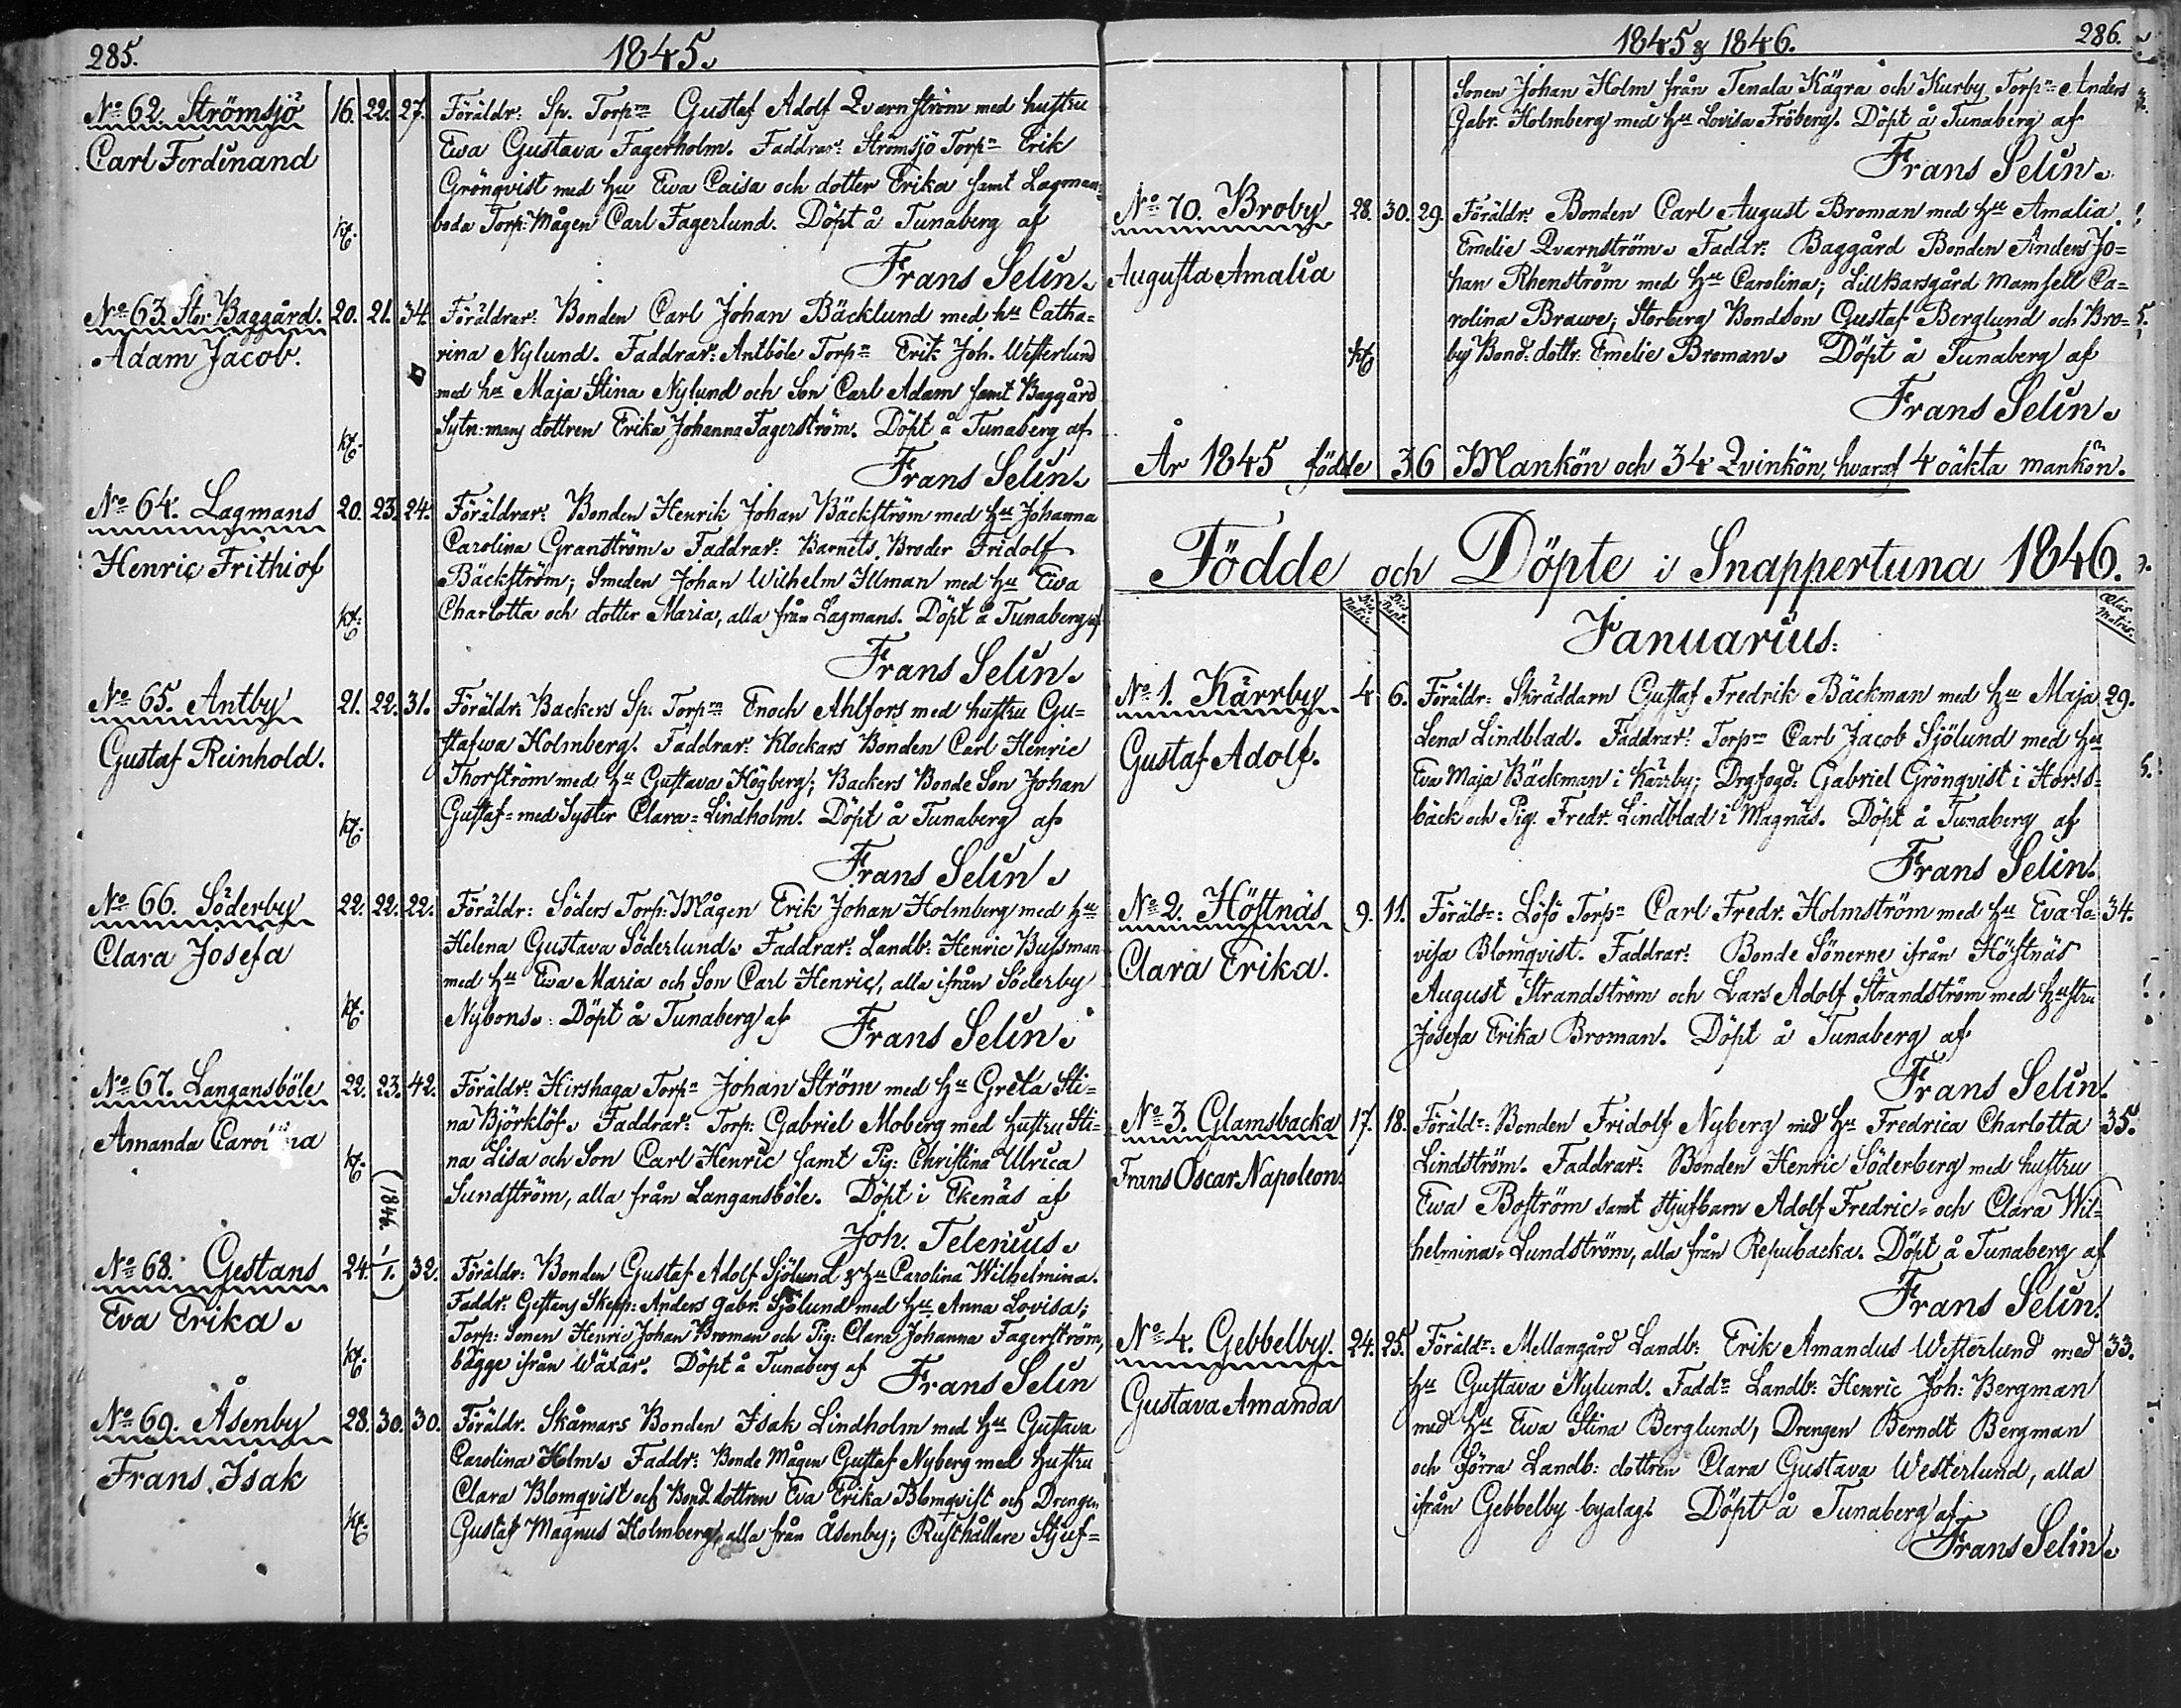 285.
1845.
No 62. Strömsjö 16. 22. 27. Föräldr: Sp. Torpm Gustaf Adolf Qvarnström med hustru
Carl Ferdinand Ewa Gustava Fagerholm. Faddrar: Strömsjö Torpn Erik
Grönqvist med hu Ewa Caisa och dotter Erika samt Lagman-
kt. boda Torp: Mågen Carl Fagerlund. Döpt å Tunaberg af
Frans Selin.
No 63. Stor Baggård. 20. 21. 34. Föräldrar: Bonden Carl Johan Bäcklund med hu Catha-
Adam Jacob. rina Nylund. Faddrar: Antböle Torpn Erik Joh. Westerlund
med hu Maja Stina Nylund och Son Carl Adam samt Baggård
kt. Sytn:mans dottren Erika Johanna Fagerström. Döpt å Tunaberg af
Frans Selin.
No 64. Lagmans 20. 23. 24. Föräldrar: Bonden Henrik Johan Bäckström med hu Johanna
Henric Frithiof Carolina Granström. Faddrar: Barnets Broder Fridolf
Bäckström; Smeden Johan Wilhelm Illman med hu Ewa
kt. Charlotta och dotter Maria, alla från Lagmans. Döpt å Tunaberg af
Frans Selin.
No 65. Antby 21. 22. 31. Föräldr: Backers Sp. Torpm Enoch Ahlfors med hustru Gu=
Gustaf Reinhold. stafwa Holmberg. Faddrar: Klockars Bonden Carl Henric
Thorström med hu Gustava Högberg; Backers Bonde Son Johan
kt. Gustaf= med Syster Clara= Lindholm. Döpt å Tunaberg af
Frans Selin.
No 66. Söderby 22. 22. 22. Föräldr: Söders Torp: Mågen Erik Johan Holmberg med hu
Clara Josefa Helena Gustava Söderlund. Faddrar: Landb: Henric Bussman
med hu Ewa Maria och Son Carl Henric, alla ifrån Söderby
kt. Nybons. Döpt å Tunaberg af Frans Selin.
No 67. Langansböle 22. 23. 42. Föräldr: Hirshaga Torpn Johan Ström med hu Greta Sti=
Amanda Carolina na Björklöf. Faddrar: Torp: Gabriel Moberg med hustru Sti=
kt. na Lisa och Son Carl Henric samt Pig: Christina Ulrica
1846. Sundström, alla från Langansböle. Döpt i Ekenäs af
Joh. Telenius.
No 68. Gestans 24. 1/1. 32. Föräldr: Bonden Gustaf Adolf Sjölund & hu Carolina Wilhelmina.
Eva Erika. Faddr: Gestans Skepp: Anders Gabr. Sjölund med hu Anna Lovisa;
Torp: Sonen Henric Johan Broman och Pig: Clara Johanna Fagerström,
kt. bägge ifrån Wätär. Döpt å Tunaberg af Frans Selin
No 69. Åsenby 28. 30. 30. Föräldr. Skåmars Bonden Isak Lindholm med hu Gustava
Frans Isak Carolina Holm. Faddr: Bonde Mågen Gustaf Nyberg med hustru
Clara Blomqvist och Bond.dottren Eva Erika Blomqvist och Drengen
kt. Gustaf Magnus Holmberg, alla från Åsenby; Rusthållare Stjuf=
1845 & 1846.
286.
Sonen Johan Holm från Tenala Kägra och Kurby Torpn Anders
Gabr. Holmberg med hu Lovisa Fröberg. Döpt å Tunaberg af
Frans Selin.
No 70. Broby 28. 30. 29. Föräldr: Bonden Carl August Broman med hu Amalia
Augusta Amalia Emelie Qvarnström. Faddr: Baggård Bonden Anders Jo=
han Rhenström med hu Carolina; Lill Barsgård Mamsell Ca=
rolina Brawe; Storberg Bondson Gustaf Berglund och Bro=
kt. by Bond.dottr. Emelie Broman. Döpt å Tunaberg af
Frans Selin.
År 1845 födde 36 Mankön och 34 Qvinkön, hvaraf 4 oäkta mankön.
Födde och Döpte i Snappertuna 1846.
Januarius.
Ætas Matris.
No 1. Kärrby 4 6. Föräldr: Skräddarn Gustaf Fredrik Bäckman med hu Maja 29.
Gustaf Adolf. Lena Lindblad. Faddrar: Torpn Carl Jacob Sjölund med hu
Eva Maja Bäckman i Kärrby; Drgfogd: Gabriel Grönqvist i Horss-
bäck och Pig. Fredr. Lindblad i Magnäs. Döpt å Tunaberg af
Frans Selin.
No 2. Höstnäs 9. 11. Föräldr: Lösö Torpn Carl Fredr. Holmström med hu Eva Lo- 34.
Clara Erika. visa Blomqvist. Faddrar: Bonde Sönerne ifrån Höstnäs
August Strandström och Lars Adolf Strandström med hustru
Josefa Erika Broman. Döpt å Tunaberg af
Frans Selin.
No 3. Glamsbacka 17. 18. Föräldr: Bonden Fridolf Nyberg med hu Fredrica Charlotta 35.
Frans Oscar Napoleon. Lindström. Faddrar: Bonden Henric Söderberg med hustru
Ewa Boström samt stjufbarn Adolf Fredric= och Clara Wil=
helmina= Lundström, alla från Repubacka. Döpt å Tunaberg af
Frans Selin.
No 4. Gebbelby. 24. 25. Föräldr: Mellangård Landb: Erik Amandus Westerlund med 33.
Gustava Amanda hu Gustava Nylund. Faddr Landb: Henric Joh: Bergman
med hu Ewa Stina Berglund, Drengen Berndt Bergman
och förra Landb: dottren Clara Gustava Westerlund, alla
ifrån Gebbelby byalag. Döpt å Tunaberg af
Frans Selin.